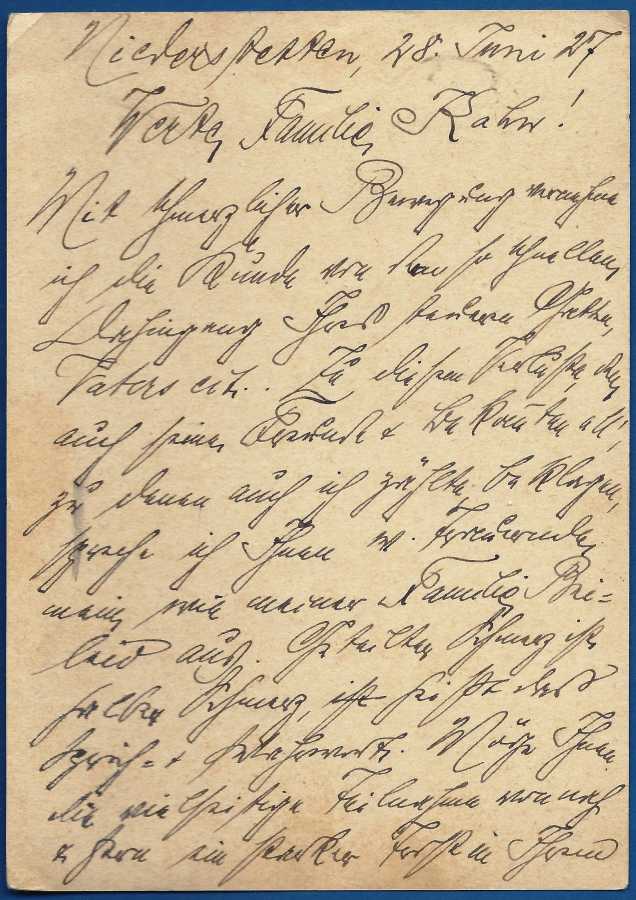 Niederstetten, 28. Juni 27
Werte Familie Kahn!
Mit schmerzlicher Bewegung vernehme
ich die Kunde von dem so schnellen
Hingang Ihres teuern Gatten,
Vaters etc. Zu diesem Verluste den
auch seine Freunde & Bekannten all',
zu denen auch ich zählte beklagen,
spreche ich Ihnen w. Trauernde,
mein, wie meiner Familie Bei=
leid aus. Geteilter Schmerz ist
halber Schmerz, ist heißt das
Sprich= & Wahrwort. Möge Ihnen
die vielseitige Teilnahme von nah
& fern ein starker Trost in Ihrem